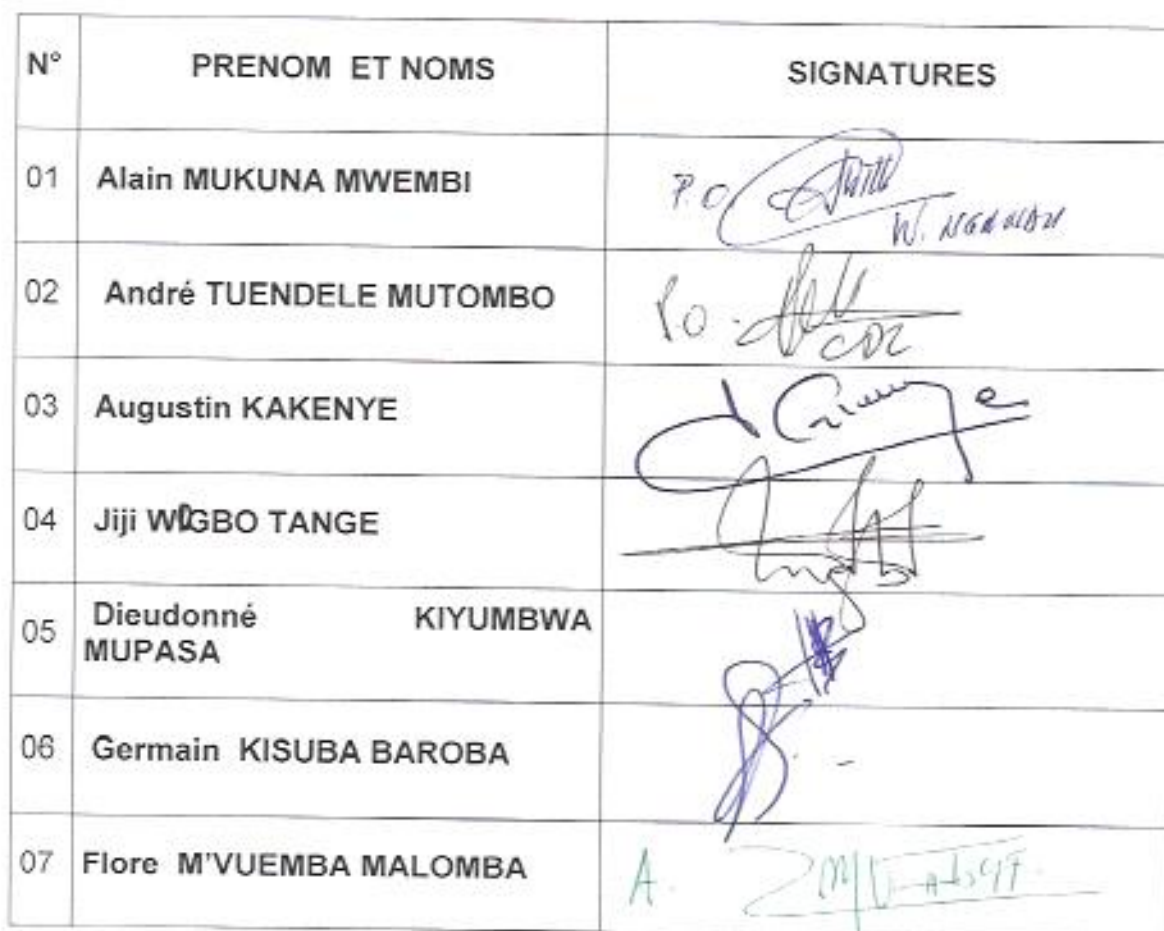 N° PRENOM ET NOMS SIGNATURES
01 Alain MUKUNA MWEMBI P.O
W.
02 André TUENDELE MUTOMBO P.O.
03 Augustin KAKENYE
04 Jiji GBO TANGE
05 Dieudonné KIYUMBWA
MUPASA
06 Germain KISUBA BAROBA
07 Flore M'VUEMBA MALOMBA A.